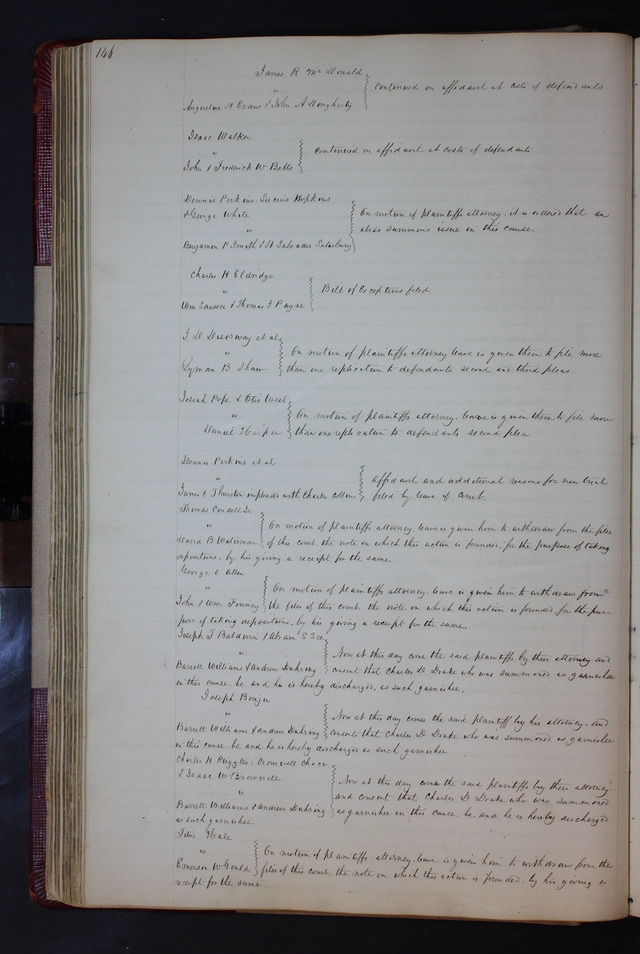 146
James R McDonald
"
Augustus H Evans & John A Dougherty
continued on affidavit at costs of defendants
Isaac Walker
"
John & Frederick W Betts
continued on affidavit at costs of defendants
Dennis Perkins Hopkins
& George White
"
Benjamin P Smith & St Salvador Salisbury
On motion of plaintiffs attorney, it is ordered that an
alias summons issue in this cause.
Charles H Eldridge
"
Wm & Thomas J Payne
Bill of Exceptions filed
et al
"
Lyman B Shaw
On motion of plaintiffs attorney leave is given them to file more
than one replication to defendants second and third pleas
Josiah Pope & Otis West
"
Daniel Harper
On motion of plaintiffs attorney, leave is given them to file more
than one replication to defendants second plea
Dennis Perkins et al
"
James C Thurston impleaded with Charles Collins
affidavit and additional reasons for new trial
filed by leave of Court
Thomas
"
David B Waterman
On motion of plaintiffs attorney, leave is given him to withdraw from the files
of this court the note on which this action is founded, for the purpose of taking
depositions, by his giving a receipt for the same.
George C Allen
"
John & Wm Finney
On motion of plaintiffs attorney, leave is given him to withdraw from
the files of this court, the note on which this action is founded, for the pur-
pose of taking depositions, by his giving a receipt for the same.
Joseph T Baldwin & Abram S
"
Barrett Williams & Andrew
Now at this day come the said plaintiffs by their attorney and
consent that Charles D Drake who was summoned as garnishee
in this cause, be and he is hereby discharged, as such garnishee.
Joseph
"
Barrett Williams & Andrew
Now at this day comes the said plaintiff by his attorney, and
consents that Charles D Drake who was summoned as garnishee
in this cause be and he is hereby discharged as such garnishee
Charles H Ruggles Cromwell Chace
& Isaac W Brownell
"
Barrett Williams & Andrew
Now at this day come the said plaintiffs by their attorney
and consent that Charles D Drake who was summoned
as garnishee in this cause, be, and he is hereby discharged
as such garnishee.
Titus Hale
"
Emerson W Gould
On motion of plaintiffs attorney, leave is given him to withdraw from the
files of this court, the note on which this action is founded, by his giving a
receipt for the same.